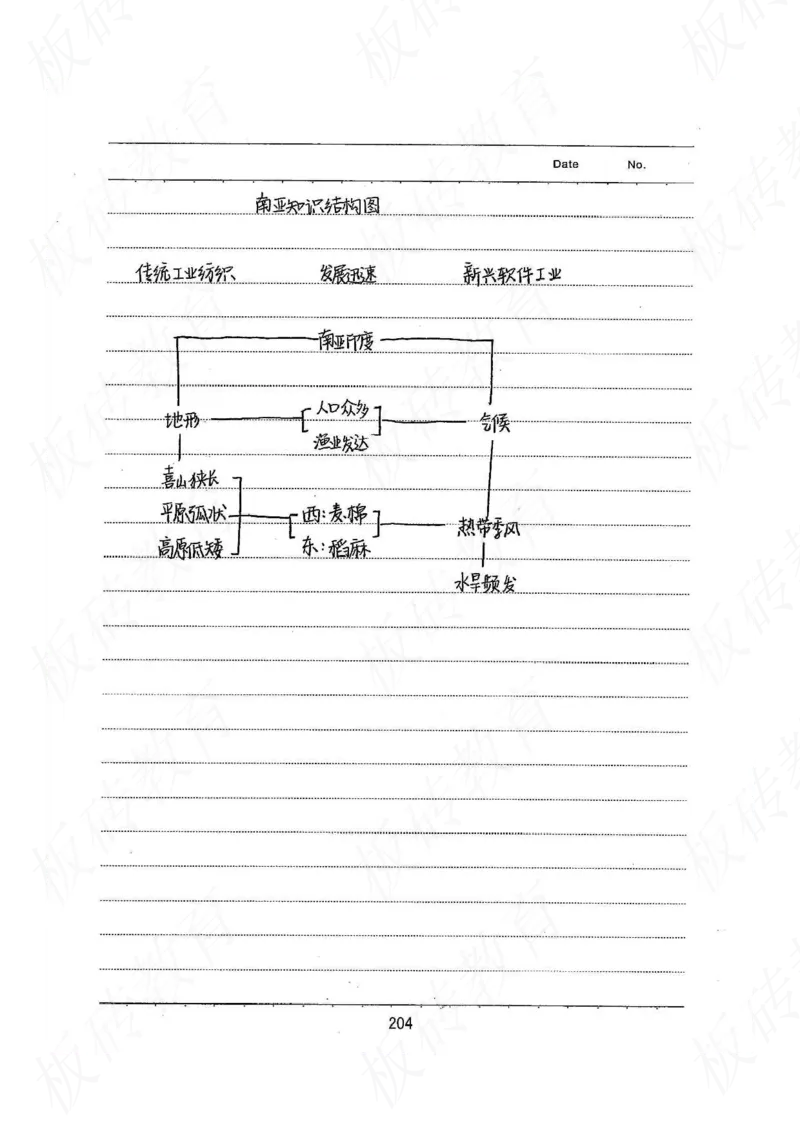 Date No.
南亚知识结构图
传统工业纺织 发展迅速 新兴软件工业
南亚印度
地形 人口众多 气候
渔业发达
喜山狭长
平原弧状 西:麦棉 热带季风
高原低矮 东:稻麻
水旱频发
204
板砖教育